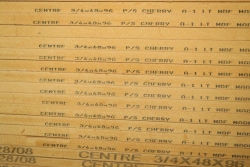 CENTRE 3/4x48x96 P/S CHERRY A-1 LT MDF
CENTRE 3/4x48x96 P/S CHERRY A-1 LT MDF MADE
CENTRE 3/4x48x96 P/S CHERRY A-1 LT MDF MADE
CENTRE 3/4x48x96 P/S CHERRY A-1 LT MDF
CENTRE 3/4x48x96 P/S CHERRY A-1 LT MDF
CENTRE 3/4x48x96 P/S CHERRY A-1 LT MDF MADE
CENTRE 3/4x48x96 P/S CHERRY A-1 LT MDF MADE
CENTRE 3/4x48x96 P/S CHERRY A-1 LT MDF MADE
CENTRE 3/4x48x96 P/S CHERRY A-1 LT MDF
28/08 CENTRE 3/4X48X9
28/08 CENTRE